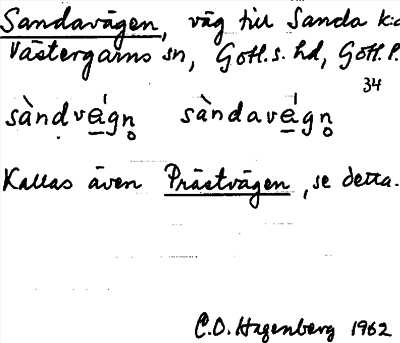 Sandavägen, väg till Sanda k:a
Västergarns sn, Gotl. s. hd, Gotl.
34
sàndvé̠i̠gn̥ sàndavé̠i̠gn̥
Kallas även Prästvägen, se detta.
C.O. Hagenberg 1962